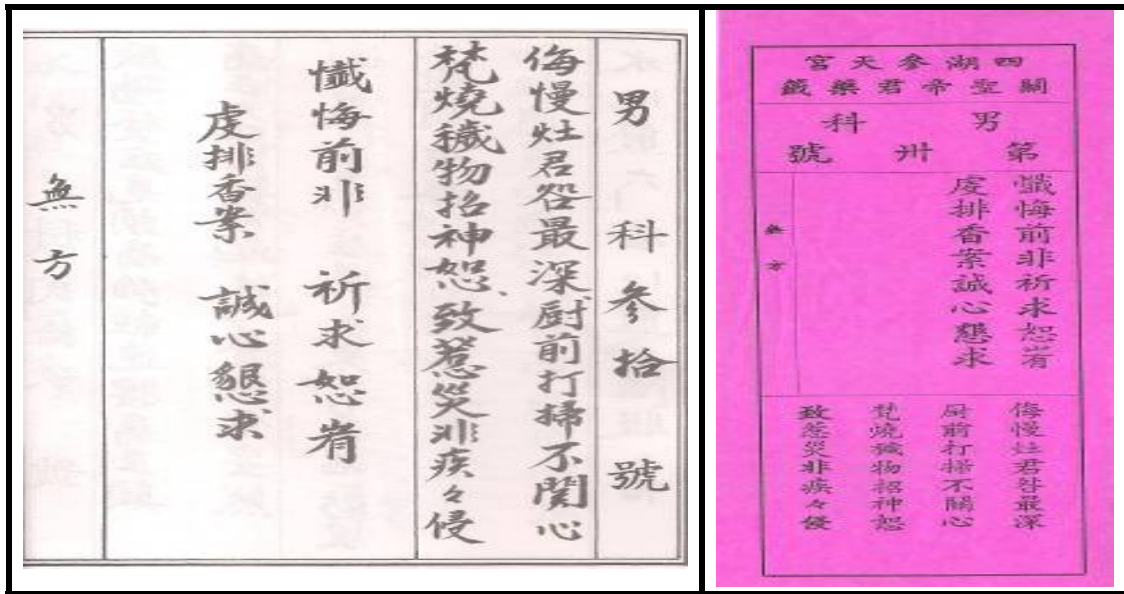 男科参拾號
侮慢灶君咎最深厨前打掃不関心
梵燒穢物招神恕、致惹災非疾々侵
懺悔前非 祈求恕宥
虔排香案 誠心懇求
無方
四湖參天宮
關聖帝君藥籤
男科
第卅號
懺悔前非祈求恕宥
虔排香案誠心懇求
無方
侮慢灶君咎最深
厨前打掃不關心
梵燒穢物招神恕
致惹災非疾々侵